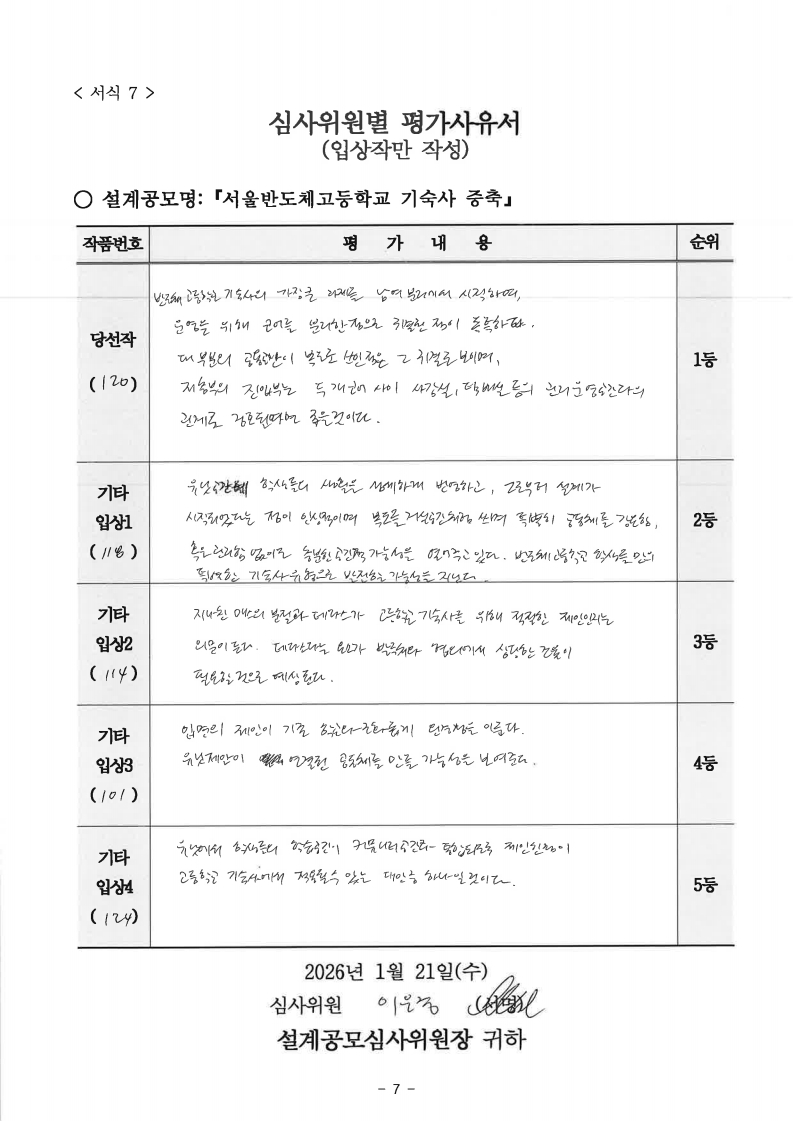 < 서식 7 >
심사위원별 평가사유서
(입상작만 작성)
○ 설계공모명: 『서울반도체고등학교 기숙사 증축』
작품번호 평 가 내 용 순위
당선작
(120)
반도체 고등학교 기숙사의 가장큰 과제를 남여 분리에서 시작하며,
운영을 위해 코어를 분리한 점으로 귀결된 점이 독특하다.
대부분의 공용공간이 복도로 쓰인 점은 그 귀결로 보이며,
지상부의 진입부는 두 개 코어 사이 사감실, 택배실 등의 관리운영공간과의
관계로 검토된다면 좋을것이다.
1등
기타
입상1
(118)
유닛 학생들의 생활을 섬세하게 반영하고, 그로부터 설계가
시작되었다는 점이 인상적이며 복도를 거실공간처럼 쓰며 특별히 공동체를
없이도 충분한 공간적 가능성을 열어주고 있다. 반도체고등학교 학생들 만의
특별한 기숙사 유형으로 발전할 가능성을 지닌다.
2등
기타
입상2
(114)
지나친 매스의 분절과 테라스가 고등학교 기숙사를 위해 적절한 제안인지는
의문이 든다. 테라스라는 요소가 발주처와 협의에서 상당한 조율이
필요할 것으로 예상된다.
3등
기타
입상3
(101)
입면의 제안이 기존 학교와 조화롭게 연속성을 이룬다.
유닛제안이 연결된 공동체를 만들 가능성을 보여준다.
4등
기타
입상4
(124)
유닛에서 학생들의 학습공간이 커뮤니티공간과 통합되도록 제안한점이
고등학교 기숙사에서 적용될수 있는 대안중 하나일 것이다.
5등
2026년 1월 21일(수)
심사위원 (서명)
설계공모심사위원장 귀하
- 7 -